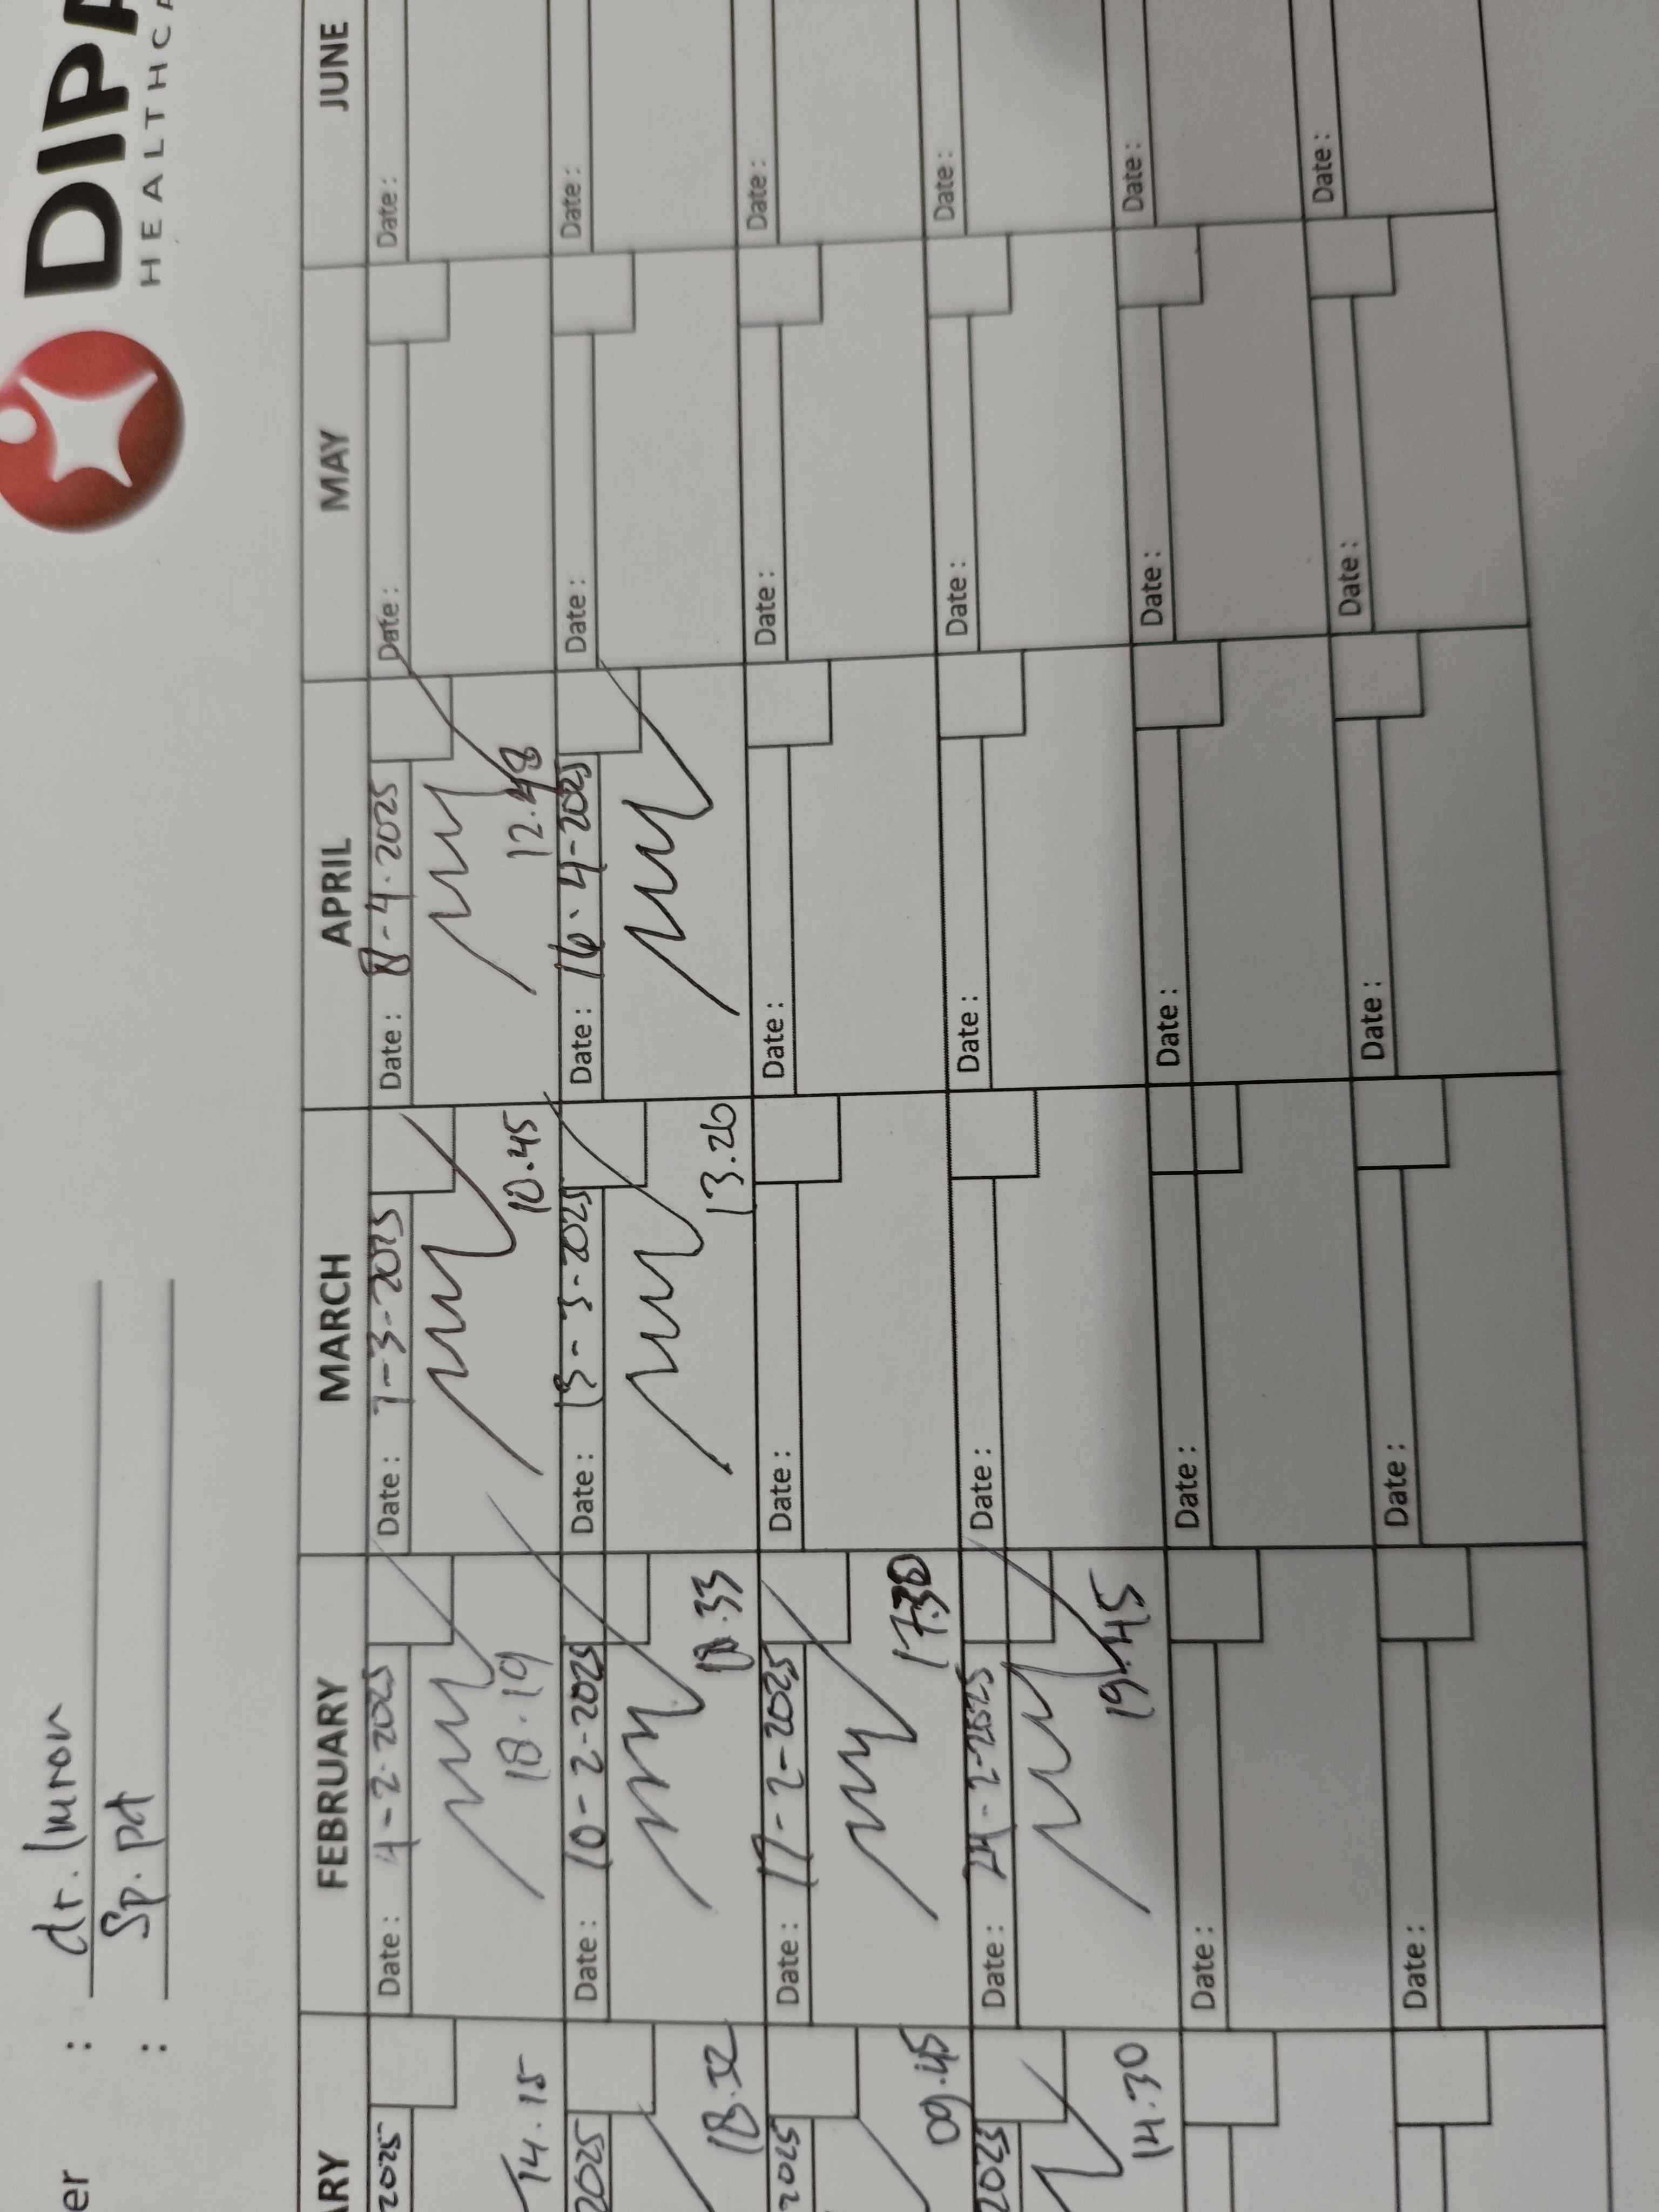 DIPA
HEALTHCA
er : dr. Imron
: Sp. pd
ARY FEBRUARY MARCH APRIL MAY JUNE
2025 Date : 4-2-2025 Date : 7-3-2025 Date : 8-4.2025 Date : Date :
14.15 18.19 10.45 12.48
2025 Date : 10-2-2025 Date : 13-3-2025 Date : 16-4-2025 Date : Date :
18.32 18.33 13.20
2025 Date : 17-2-2025 Date : Date : Date : Date :
09.45 17.30
2025 Date : 24-2-2025 Date : Date : Date : Date :
14.30 19.45
Date : Date : Date : Date : Date :
Date : Date : Date : Date : Date :